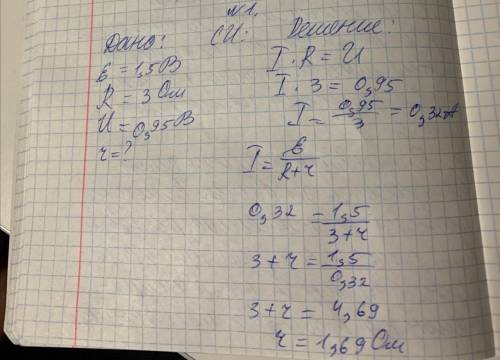 №1.
Дано: СИ: Решение.
Ɛ = 1,5 В
R = 3 Ом
U = 0,95 В
r = ?
I · R = U
I · 3 = 0,95
I = 0,95/3 = 0,32 А
I = Ɛ/(R+r)
0,32 = 1,5/(3+r)
3+r = 1,5/0,32
3+r = 4,69
r = 1,69 Ом